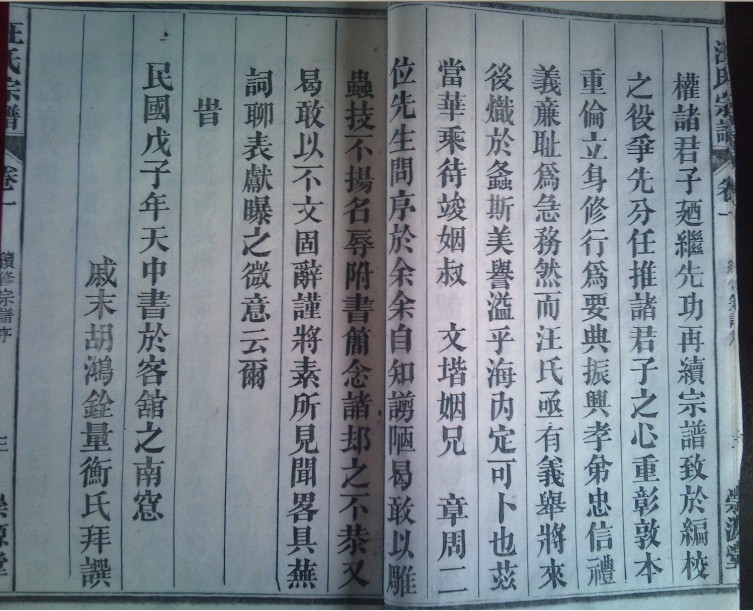 汪氏宗譜 卷一
權諸君子廼繼先功再續宗譜致於編校
之役爭先分任推諸君子之心重彰敦本
重倫立身修行爲要典振興孝弟忠信禮
義亷耻爲急務然而汪氏亟有義舉將來
後熾於螽斯美譽溢乎海内定可卜也茲
當華乘待竣姻叔 文堦姻兄 章周二
位先生問序於余余自知謭陋曷敢以雕
蟲技不揚名辱附書簡念諸却之不恭又
曷敢以不文固辭謹將素所見聞畧具蕪
詞聊表獻曝之微意云爾
旹
民國戊子年天中書於客舘之南窓
戚末胡鴻銓量衡氏拜譔
汪氏宗譜 卷一 續修宗譜序 三 崇源堂